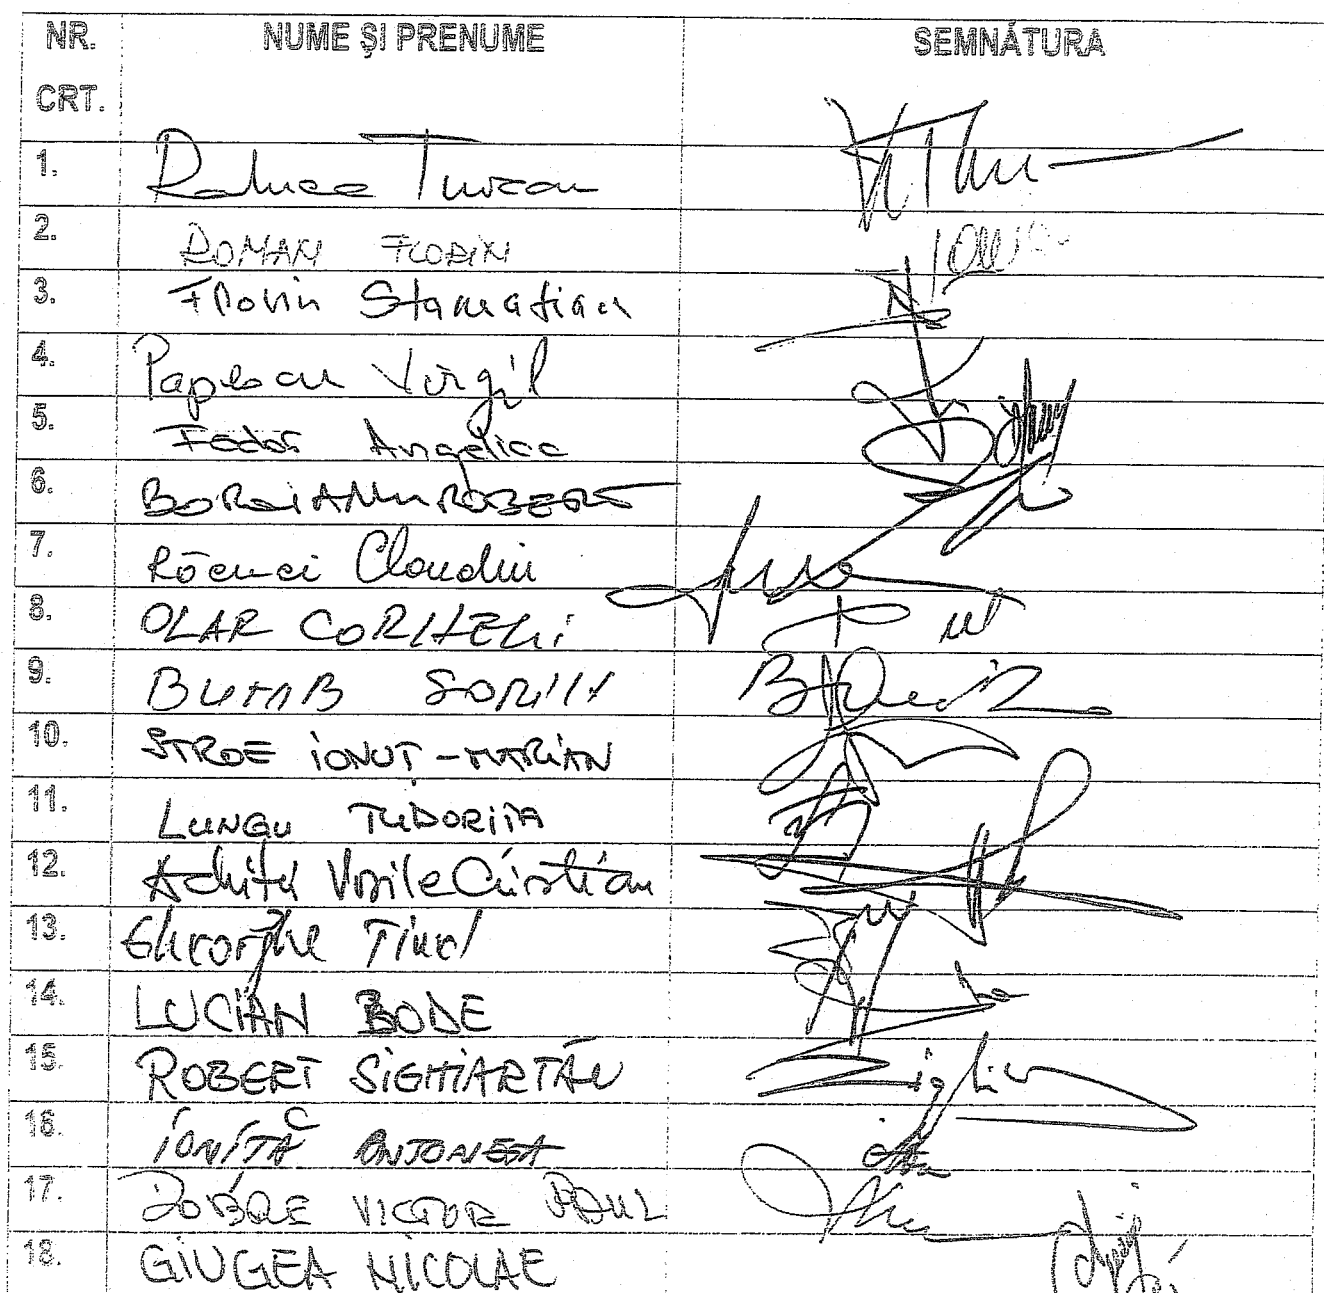 NR. CRT. NUME ȘI PRENUME SEMNĂTURA
1. Raluca Turcan
2. ROMAN FLORIN
3. Florin Stamatian
4. Popescu Virgil
5. Fedor Angelica
6. BOROIANU ROBERT
7. Răcuci Claudiu
8. OLAR CORNELIU
9. BUMB SORIN
10. STROE IONUȚ - MARIAN
11. LUNGU TUDORIȚA
12. Achiței Vasile Cristian
13. Gheorghe Tinel
14. LUCIAN BODE
15. ROBERT SIGHIARTĂU
16. IONIȚĂ ANTONETA
17. DOBRE VICTOR PAUL
18. GIUGEA NICOLAE